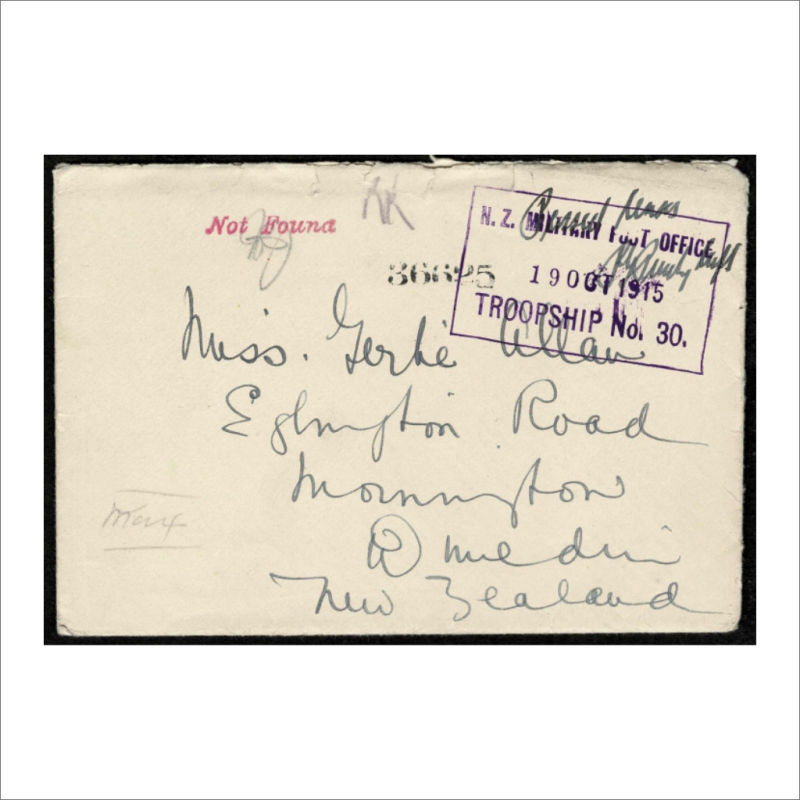 Not Found
36625
N. Z. MILITARY POST OFFICE
19 OCT 1915
TROOPSHIP No. 30.
Miss. Gertie Allan
Eglington Road
Mornington
Dunedin
New Zealand